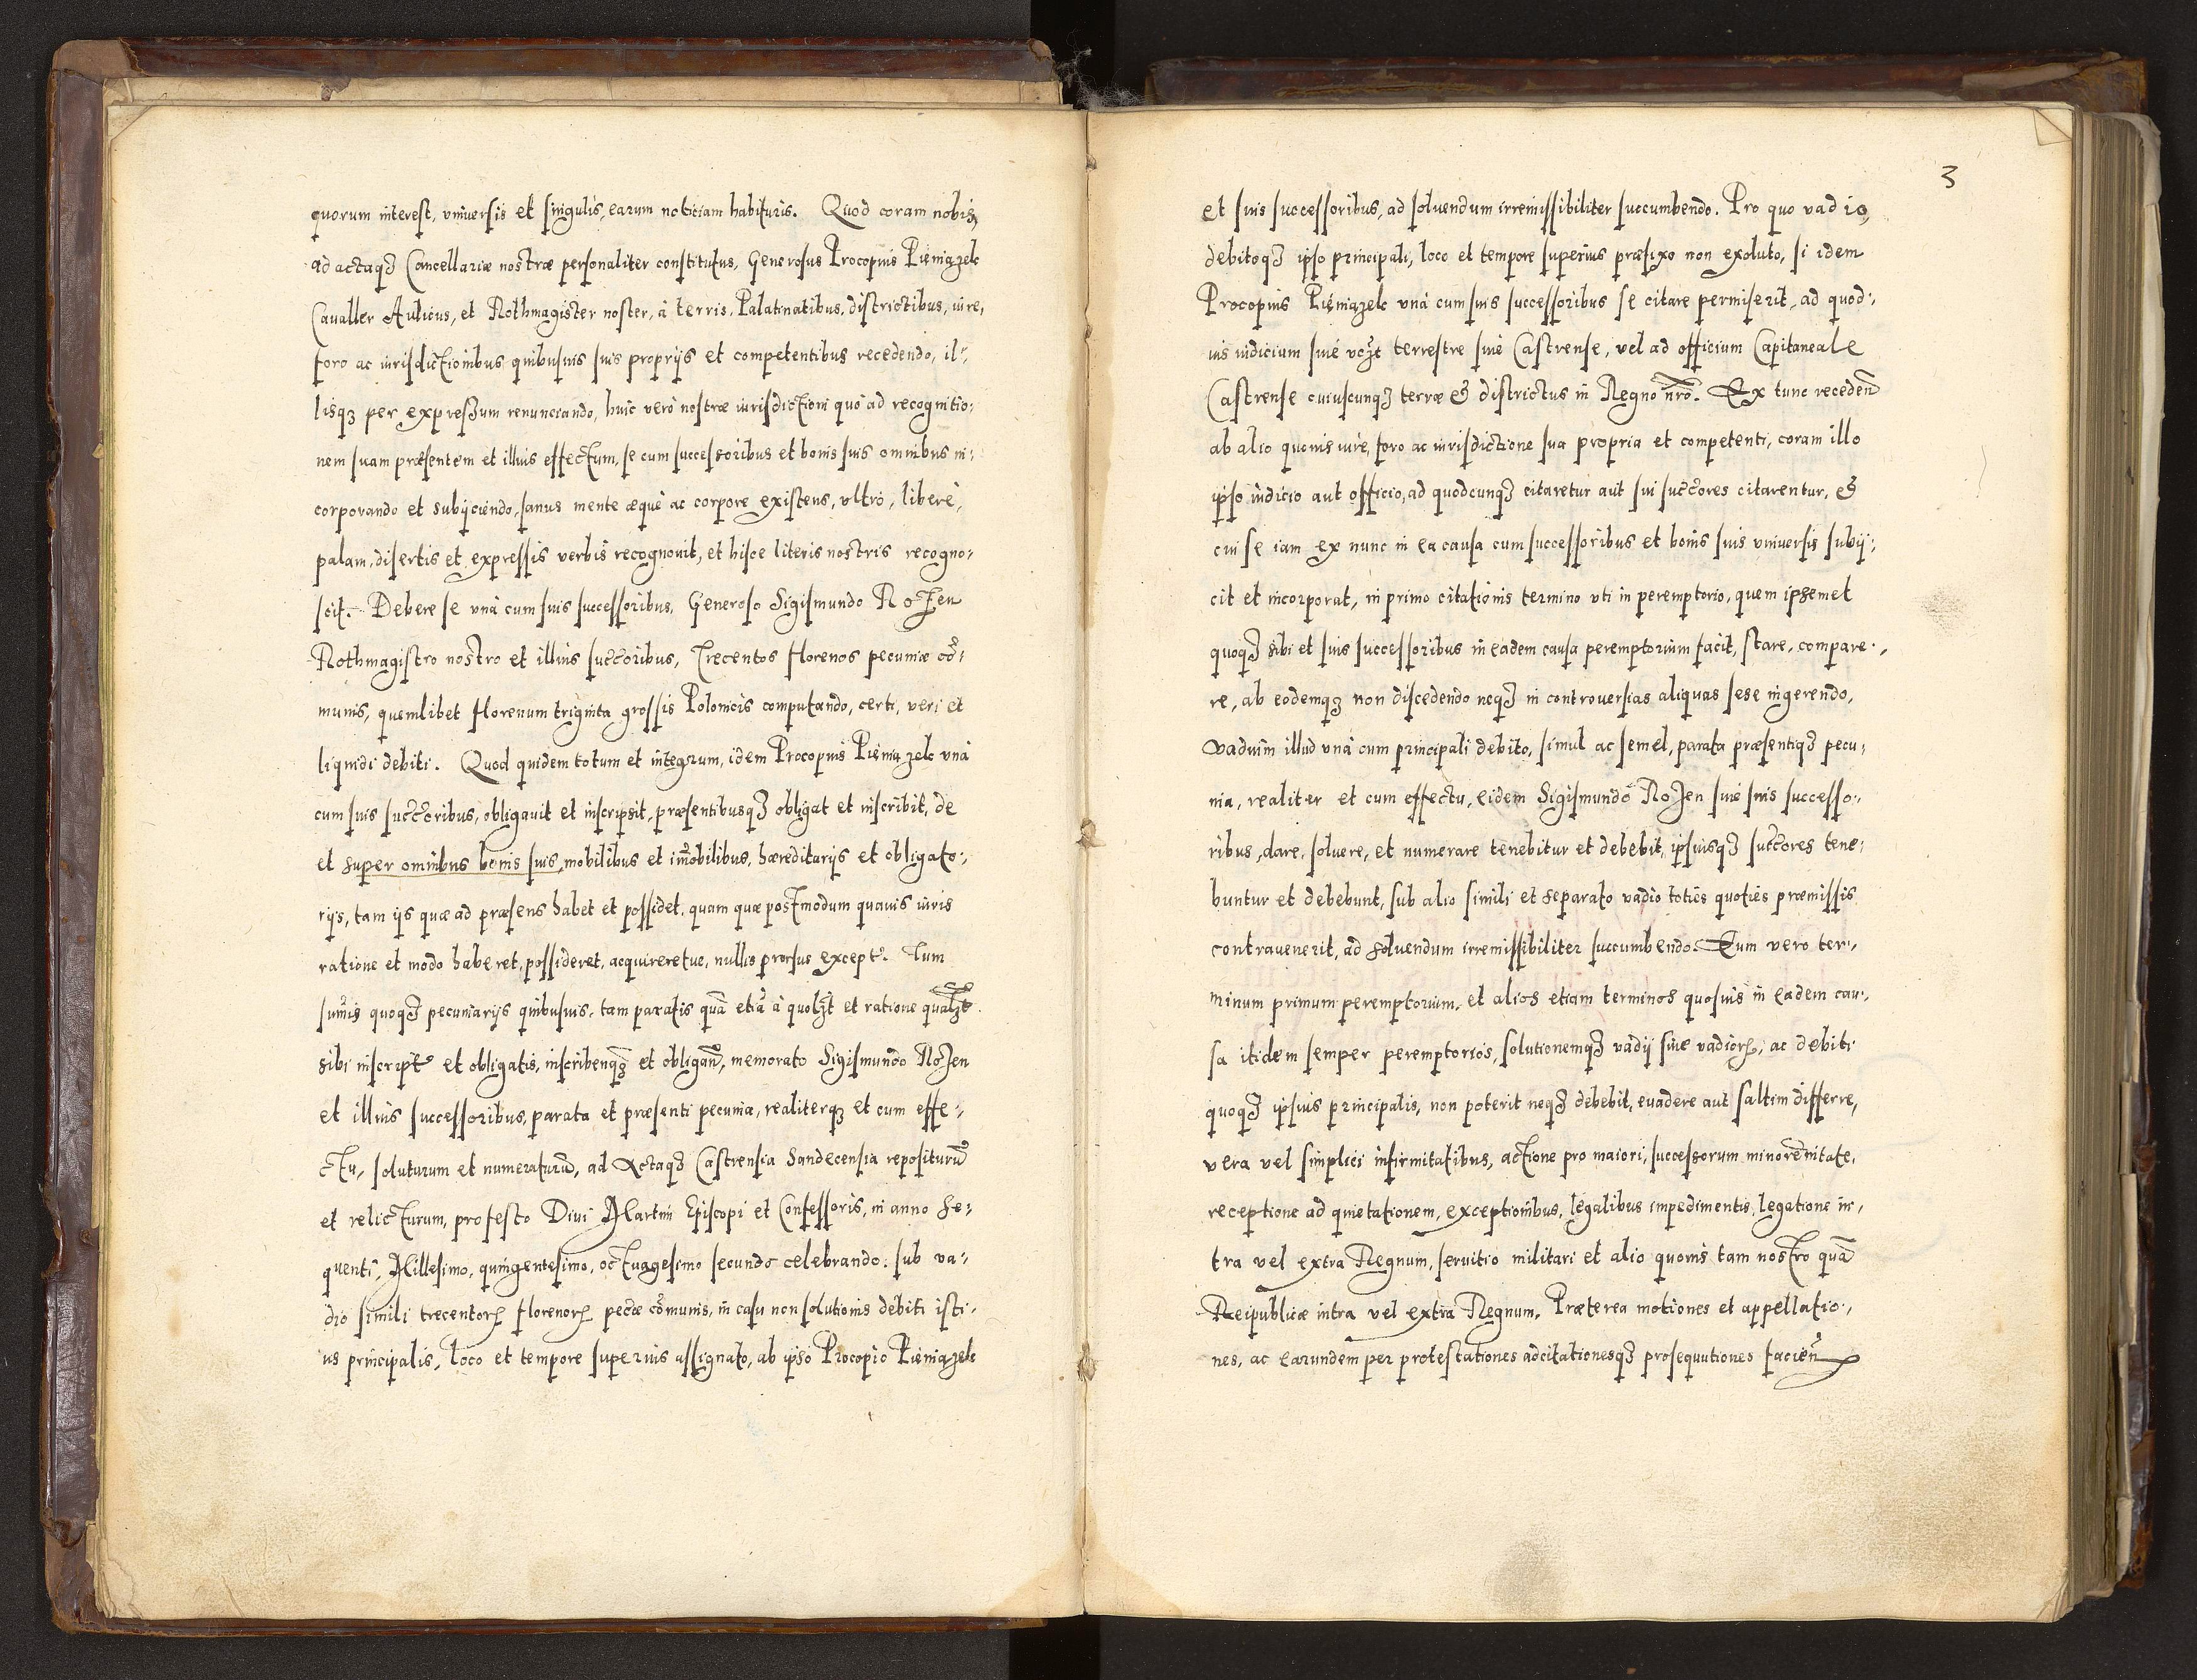 quorum interest, vniuersis et singulis, earum noticiam habituris. Quod coram nobis
ad actaqꝫ Cancellariæ nostræ personaliter constitutus, Generosus Procopius Pieniązek
Cavaller Aulicus, et Rothmagister noster, à terris, Palatinatibus, districtibus, iure,
foro ac iurisdictionibus quibusuis suis proprijs et competentibus recedendo, il-
lisqꝫ per expressum renunciando, huic verò nostræ iurisdictioni quò ad recognitio-
nem suam præsentem et illius effectum, se cum successoribus et bonis suis omnibus in-
corporando et subijciendo, sanus mente æquè ac corpore existens, vltrò, liberè,
palam, disertis et expressis verbis recognouit, et hisce literis nostris recogno-
scit. Debere se vnà cum suis successoribus, Generoso Sigismundo Rozen
Rothmagistro nostro et illius succ̃oribus, Trecentos florenos pecuniæ cõ-
munis, quemlibet florenum triginta grossis Polonicis computando, certi, veri et
liquidi debiti. Quod quidem totum et integrum, idem Procopius Pieniązek vnà
cum suis succ̃oribus, obligauit et inscripsit, præsentibusqꝫ obligat et inscribit, de
et super omnibus bonis suis, mobilibus et im̃obilibus, hæreditarijs et obligato-
rijs, tam ijs quæ ad præsens habet et possidet, quam quæ postmodum quauis iuris
ratione et modo haberet, possideret, acquireretue, nullis prorsus except̃. Tum
sum̃is quoqꝫ pecuniarijs quibusuis, tam paratis quã etiã à quolꝫt et ratione qualꝫt
sibi inscript̃ et obligatis, inscribenqꝫ et obligañ, memorato Sigismundo Rozen
et illius successoribus, parata et præsenti pecunia, realiterqꝫ et cum effe-
ctu, soluturum et numeraturũ, ad Actaqꝫ Castrensia Sandecensia repositurũ
et relicturum, pro festo Diui Martini Episcopi et Confessoris, in anno se-
quenti, Millesimo, quingentesimo, octuagesimo secundo celebrando: sub va-
dio simili trecentoꝝ florenoꝝ pecꝭæ cõmunis, in casu non solutionis debiti isti-
us principalis, loco et tempore superius assignato, ab ipso Procopio Pieniązek
3
et suis successoribus, ad soluendum irremissibiliter succumbendo. Pro quo vadio,
debitoqꝫ ipso principali, loco et tempore superius præfixo non exoluto, si idem
Procopius Pieniązek vnà cum suis successoribus se citare permiserit, ad quod-
uis iudicium siuè vcꝫt terrestre siuè Castrense, vel ad officium Capitaneale
Castrense cuiuscunqꝫ terræ & districtus in Regno nr̃o. Ex tunc recedeñ
ab alio quouis iure, foro ac iurisdictione sua propria et competenti, coram illo
ipso iudicio aut officio, ad quodcunqꝫ citaretur aut sui succ̃ores citarentur, &
cui se iam ex nunc in ea causa cum successoribus et bonis suis vniuersis subij-
cit et incorporat, in primo citationis termino vti in peremptorio, quem ipsemet
quoqꝫ sibi et suis successoribus in eadem causa peremptorium facit, stare, compare-
re, ab eodemqꝫ non discedendo neqꝫ in controuersias aliquas sese ingerendo,
vadium illud vnà cum principali debito, simul ac semel, parata præsentiqꝫ pecu-
nia, realiter et cum effectu, eidem Sigismundo Rozen siuè suis successo-
ribus, dare, soluere, et numerare tenebitur et debebit, ipsiusqꝫ succ̃ores tene-
buntur et debebunt, sub alio simili et separato vadio toties quoties præmissis
contrauenerit, ad soluendum irremissibiliter succumbendo. Eum vero ter-
minum primum peremptorium, et alios etiam terminos quosuis in eadem cau-
sa itidem semper peremptorios, solutionemqꝫ vadij siue vadioꝝ, ac debiti
quoqꝫ ipsius principalis, non poterit neqꝫ debebit, euadere aut saltim differre,
vera vel simplici infirmitatibus, actione pro maiori, successorum minorẽnitate,
receptione ad quietationem, exceptionibus, legalibus impedimentis, legatione in-
tra vel extra Regnum, seruitio militari et alio quouis tam nostro quã
Reipublicæ intra vel extra Regnum. Præterea motiones et appellatio-
nes, ac earundem per protestationes adcitationesqꝫ prosequutiones facieñ